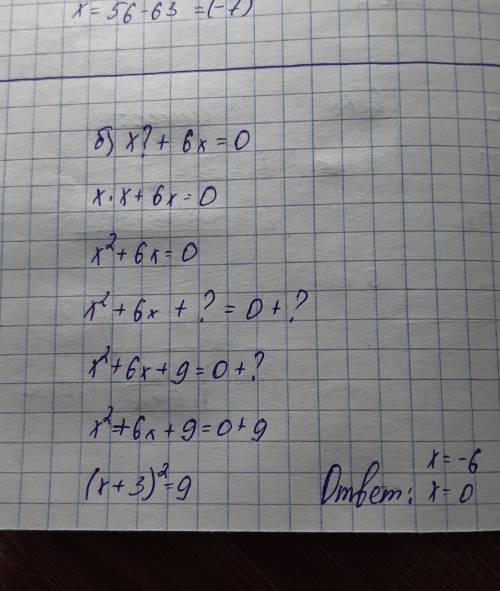 x = 56 - 63 = (-7)
б) x? + 6x = 0
x · x + 6x = 0
x² + 6x = 0
x² + 6x + ? = 0 + ?
x² + 6x + 9 = 0 + ?
x² + 6x + 9 = 0 + 9
(x + 3)² = 9
Ответ: x = -6
x = 0